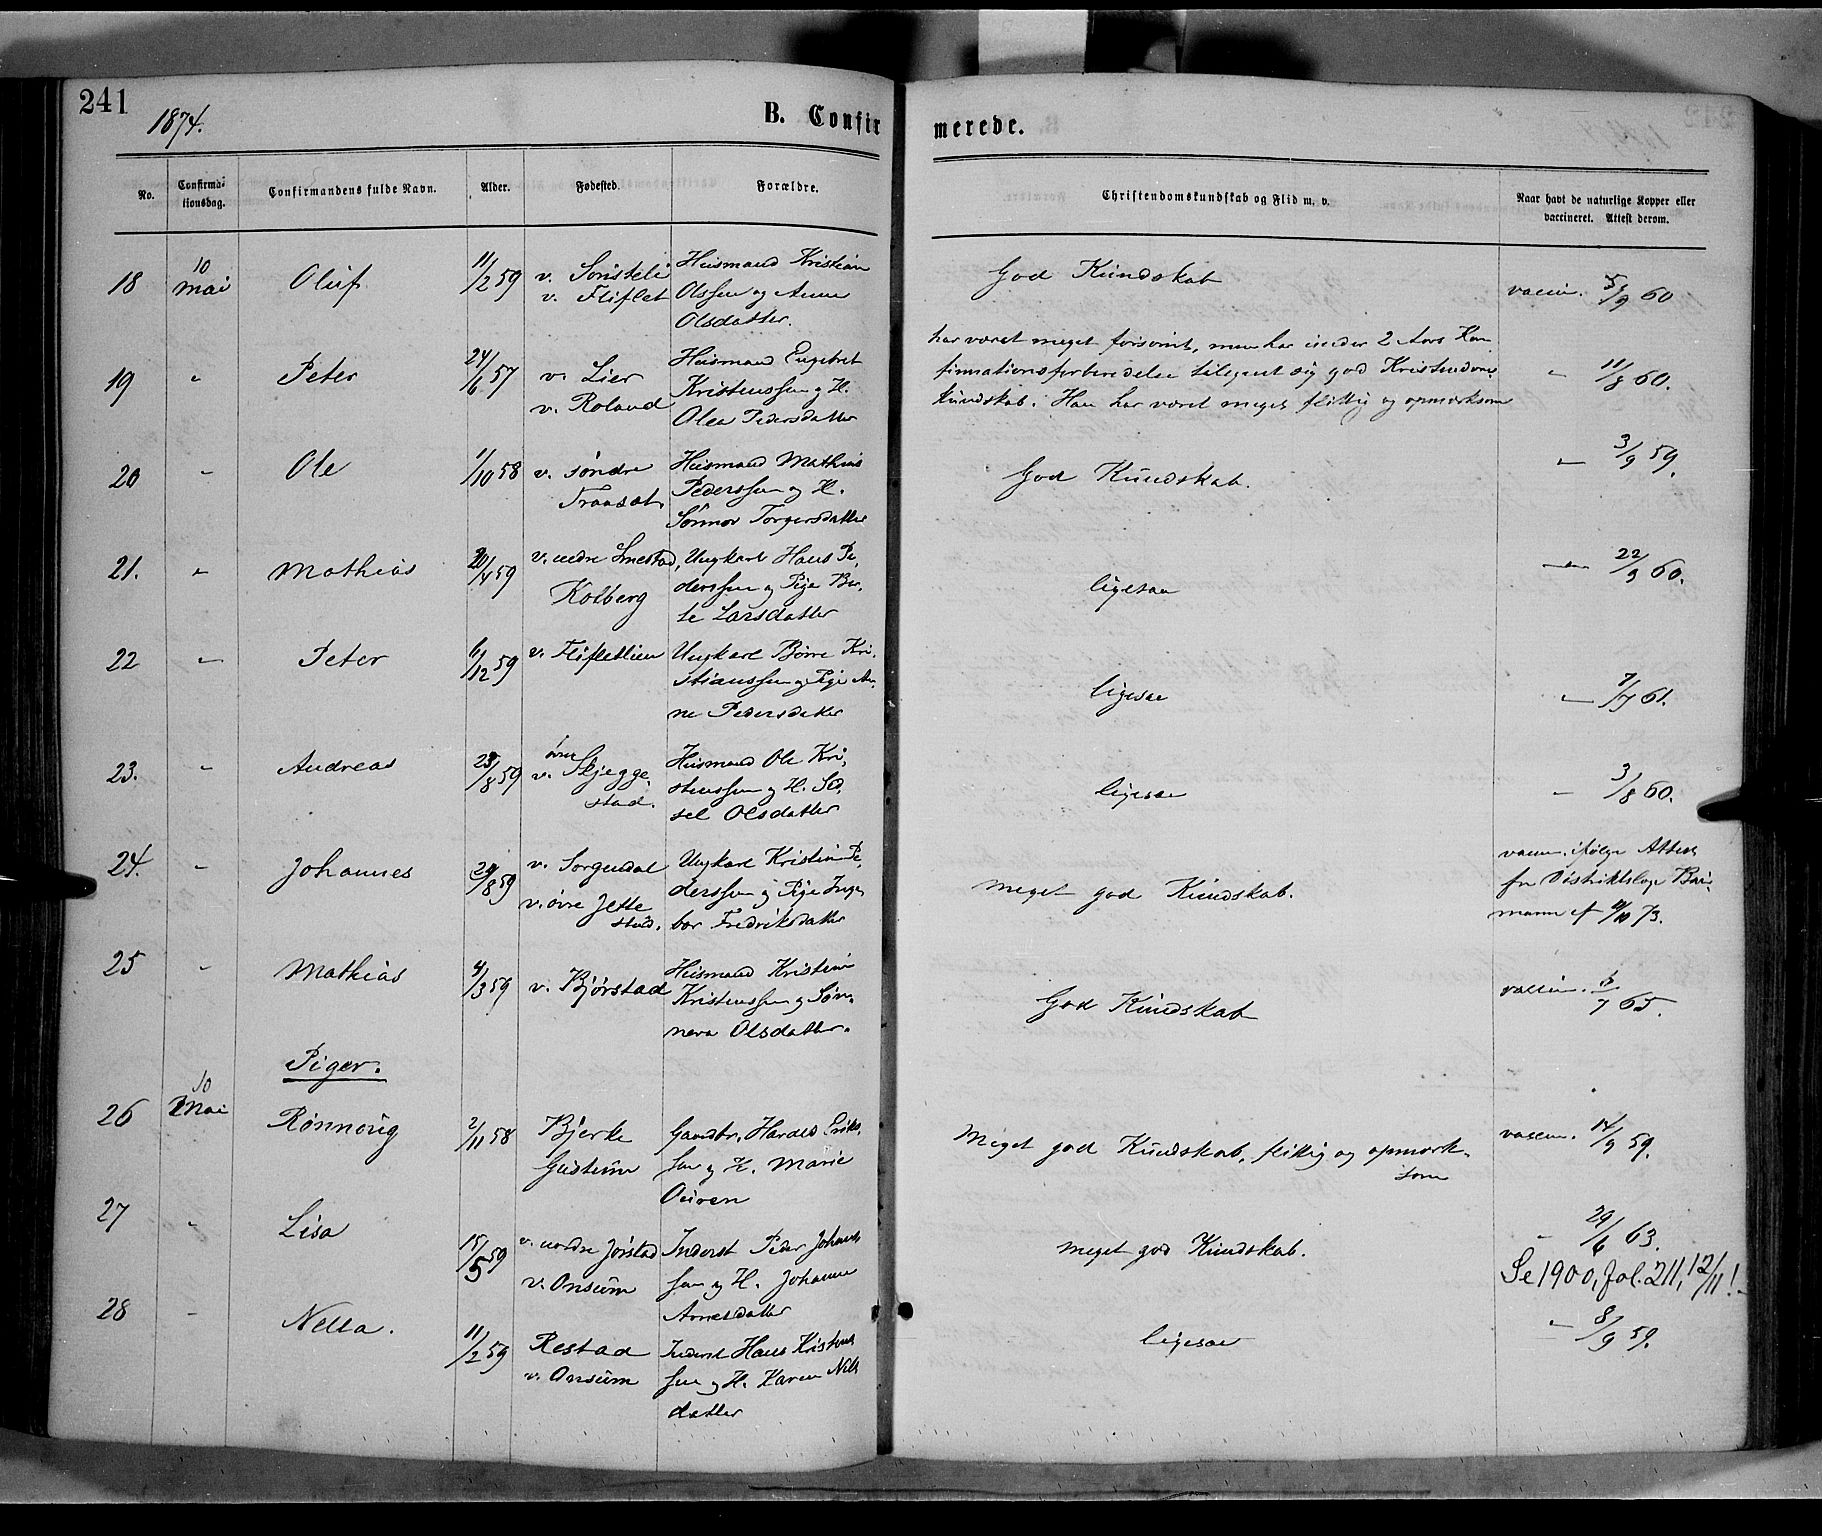 241
1874.
B. Confirmerede.
No.
Confirmationsdag.
Confirmandens fulde Navn.
Alder.
Fødested.
Forældre.
Christendomskundskab og Flid m. v.
Naar havt de naturlige Kopper eller
vaccineret. Attest derom.
18 10 Mai Oluf 11/2 59 v. v. Fliflet
Huusmand Kristian
Olssen og Anne
Olsdatter.
God Kundskab
vaccin. 5/9 60
19 " Peter 24/6 57 v. Lier
v. Roland
Huusmand Engebret
Kristenssen og H.
Olea Pedersdatter
har været meget forsømt, men har under 2 Aars Kon
firmationsforberedelse tilegnet sig god Kristendoms
kundskab. Han har været meget flittig og opmærksom
" 11/8 60.
20 " Ole 1/10 58 v. søndre
Traasæt
Huusmand Mathias
Pederssen og H.
Sønnov Torgersdatter
God Kundskab.
" 3/9 59.
21. " Mathias 20/4 59 v. nedre Smestad,
Kolberg
Ungkarl Hans Pe,
derssen og Pige Be,
te Larsdatter
ligesaa
" 22/9 60.
22 " Peter 6/12 59 v. Flifletlien
Ungkarl Børre Kri,
stianssen og Pige An,
ne Pedersdatter
ligesaa
" 7/7 61.
23. " Andreas 23/8 59 v. øvre Skjegge,
stad.
Huusmand Ole Kri,
stenssen og H. Sid,
sel Olsdatter
ligesaa
" 3/8 60.
24. " Johannes 29/8 59 v. Sorgendal
v. øvre Jette
stad.
Ungkarl Kristian Pe,
derssen og Pige Inge,
bor Fredriksdatter
meget god Kundskab.
vaccin. ifølge Attest
fra Distriktslæge
af /10 73.
25 " Mathias 4/3 59 v. Bjørstad
Huusmand Kristian
Kristenssen og Søn,
nera Olsdatter.
God Kundskab
vaccin. 6/7 65.
Piger.
26 10 Mai Rønnoug 2/11 58 Bjerke
Gustum
Gaardbr. Harald Eriks,
sen og H. Marie
Meget god Kundskab, flittig og opmærk,
som
vaccin. 14/9 59.
27 " Lisa 15/5 59 v. nordre Jørstad
v. Onsum
Inderst Peder Johannes
sen og H. Johanne
Arnesdatter
meget god Kundskab.
" 29/6 63.
Se 1900, fol. 211, 12/11!
28 " Nella. 11/2 59 Restad
v. Onsum
Inderst Hans Kristens
sen og H. Karen Nils
datter
ligesaa
" 8/9 59.